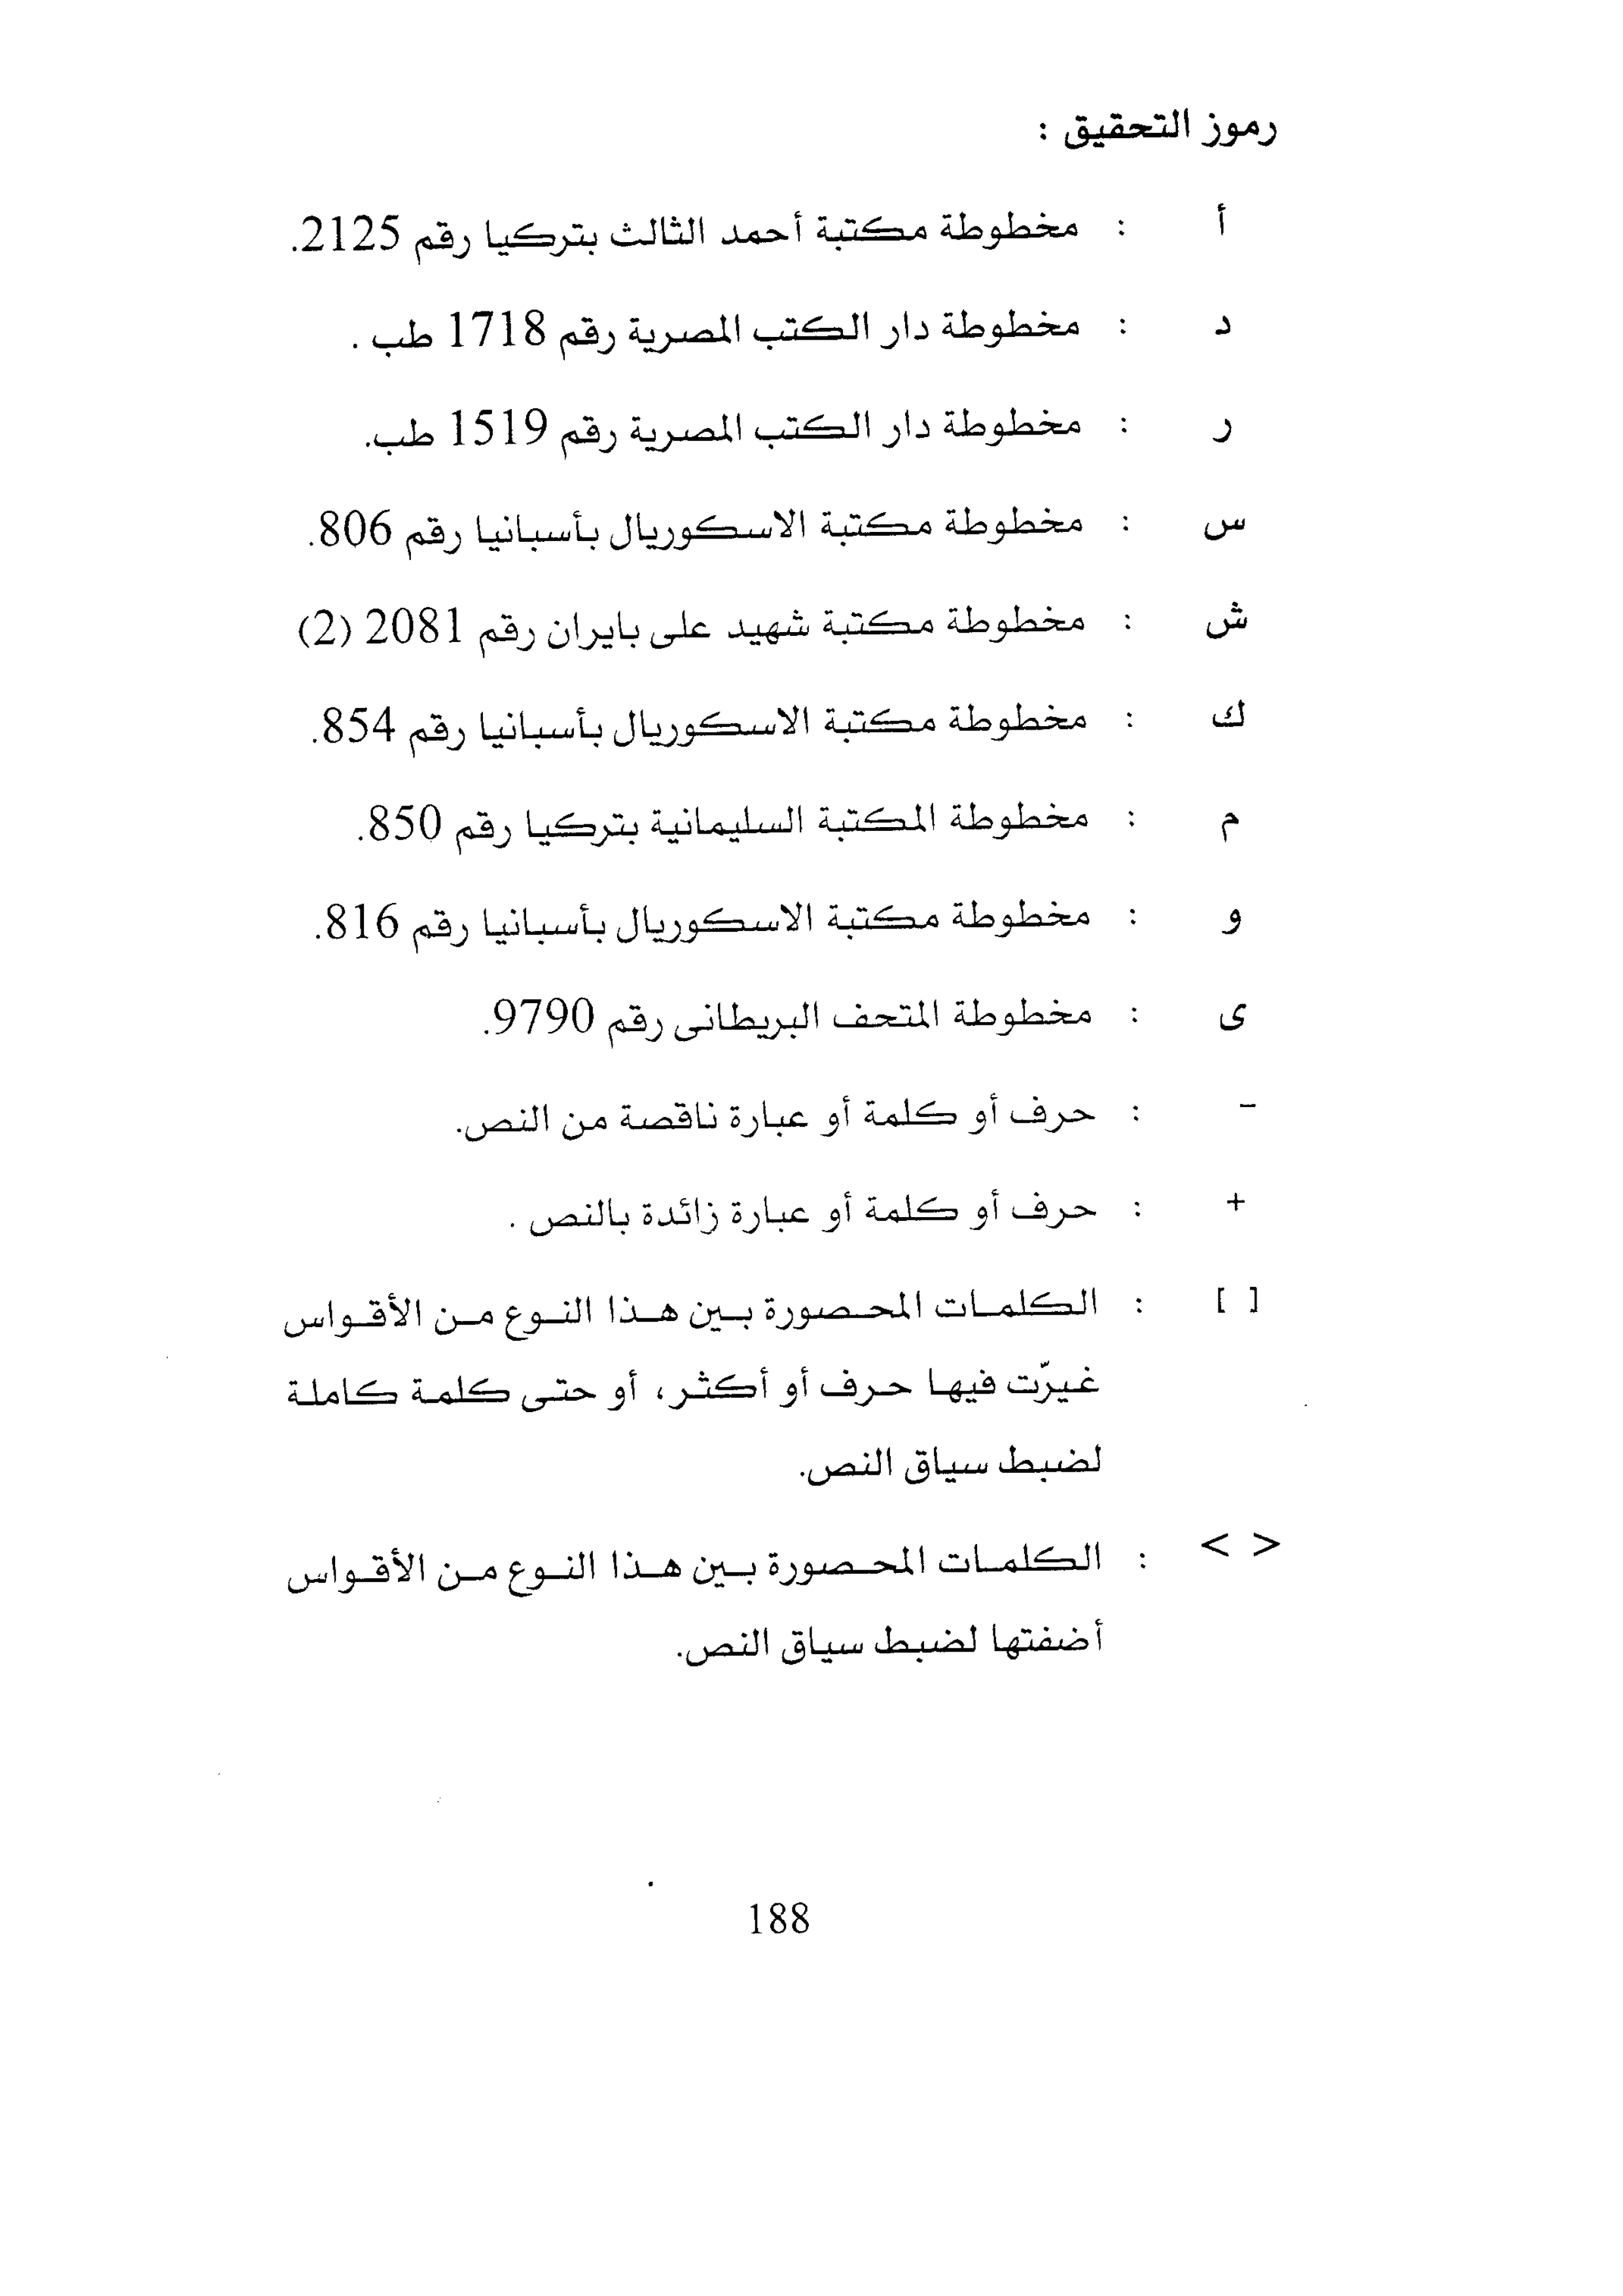 رموز التحقيق :
أ : مخطوطة مكتبة أحمد الثالث بتركيا رقم 2125.
د : مخطوطة دار الكتب المصرية رقم 1718 طب .
ر : مخطوطة دار الكتب المصرية رقم 1519 طب.
س : مخطوطة مكتبة الاسكوريال بأسبانيا رقم 806.
ش : مخطوطة مكتبة شهيد على بايران رقم 2081 (2)
ك : مخطوطة مكتبة الاسكوريال بأسبانيا رقم 854.
م : مخطوطة المكتبة السليمانية بتركيا رقم 850.
و : مخطوطة مكتبة الاسكوريال بأسبانيا رقم 816.
ى : مخطوطة المتحف البريطانى رقم 9790.
– : حرف أو كلمة أو عبارة ناقصة من النص.
+ : حرف أو كلمة أو عبارة زائدة بالنص .
[ ] : الكلمات المحصورة بين هذا النوع من الأقواس
غيرّت فيها حرف أو أكثر، أو حتى كلمة كاملة
لضبط سياق النص.
< > : الكلمات المحصورة بين هذا النوع من الأقواس
أضفتها لضبط سياق النص.
188